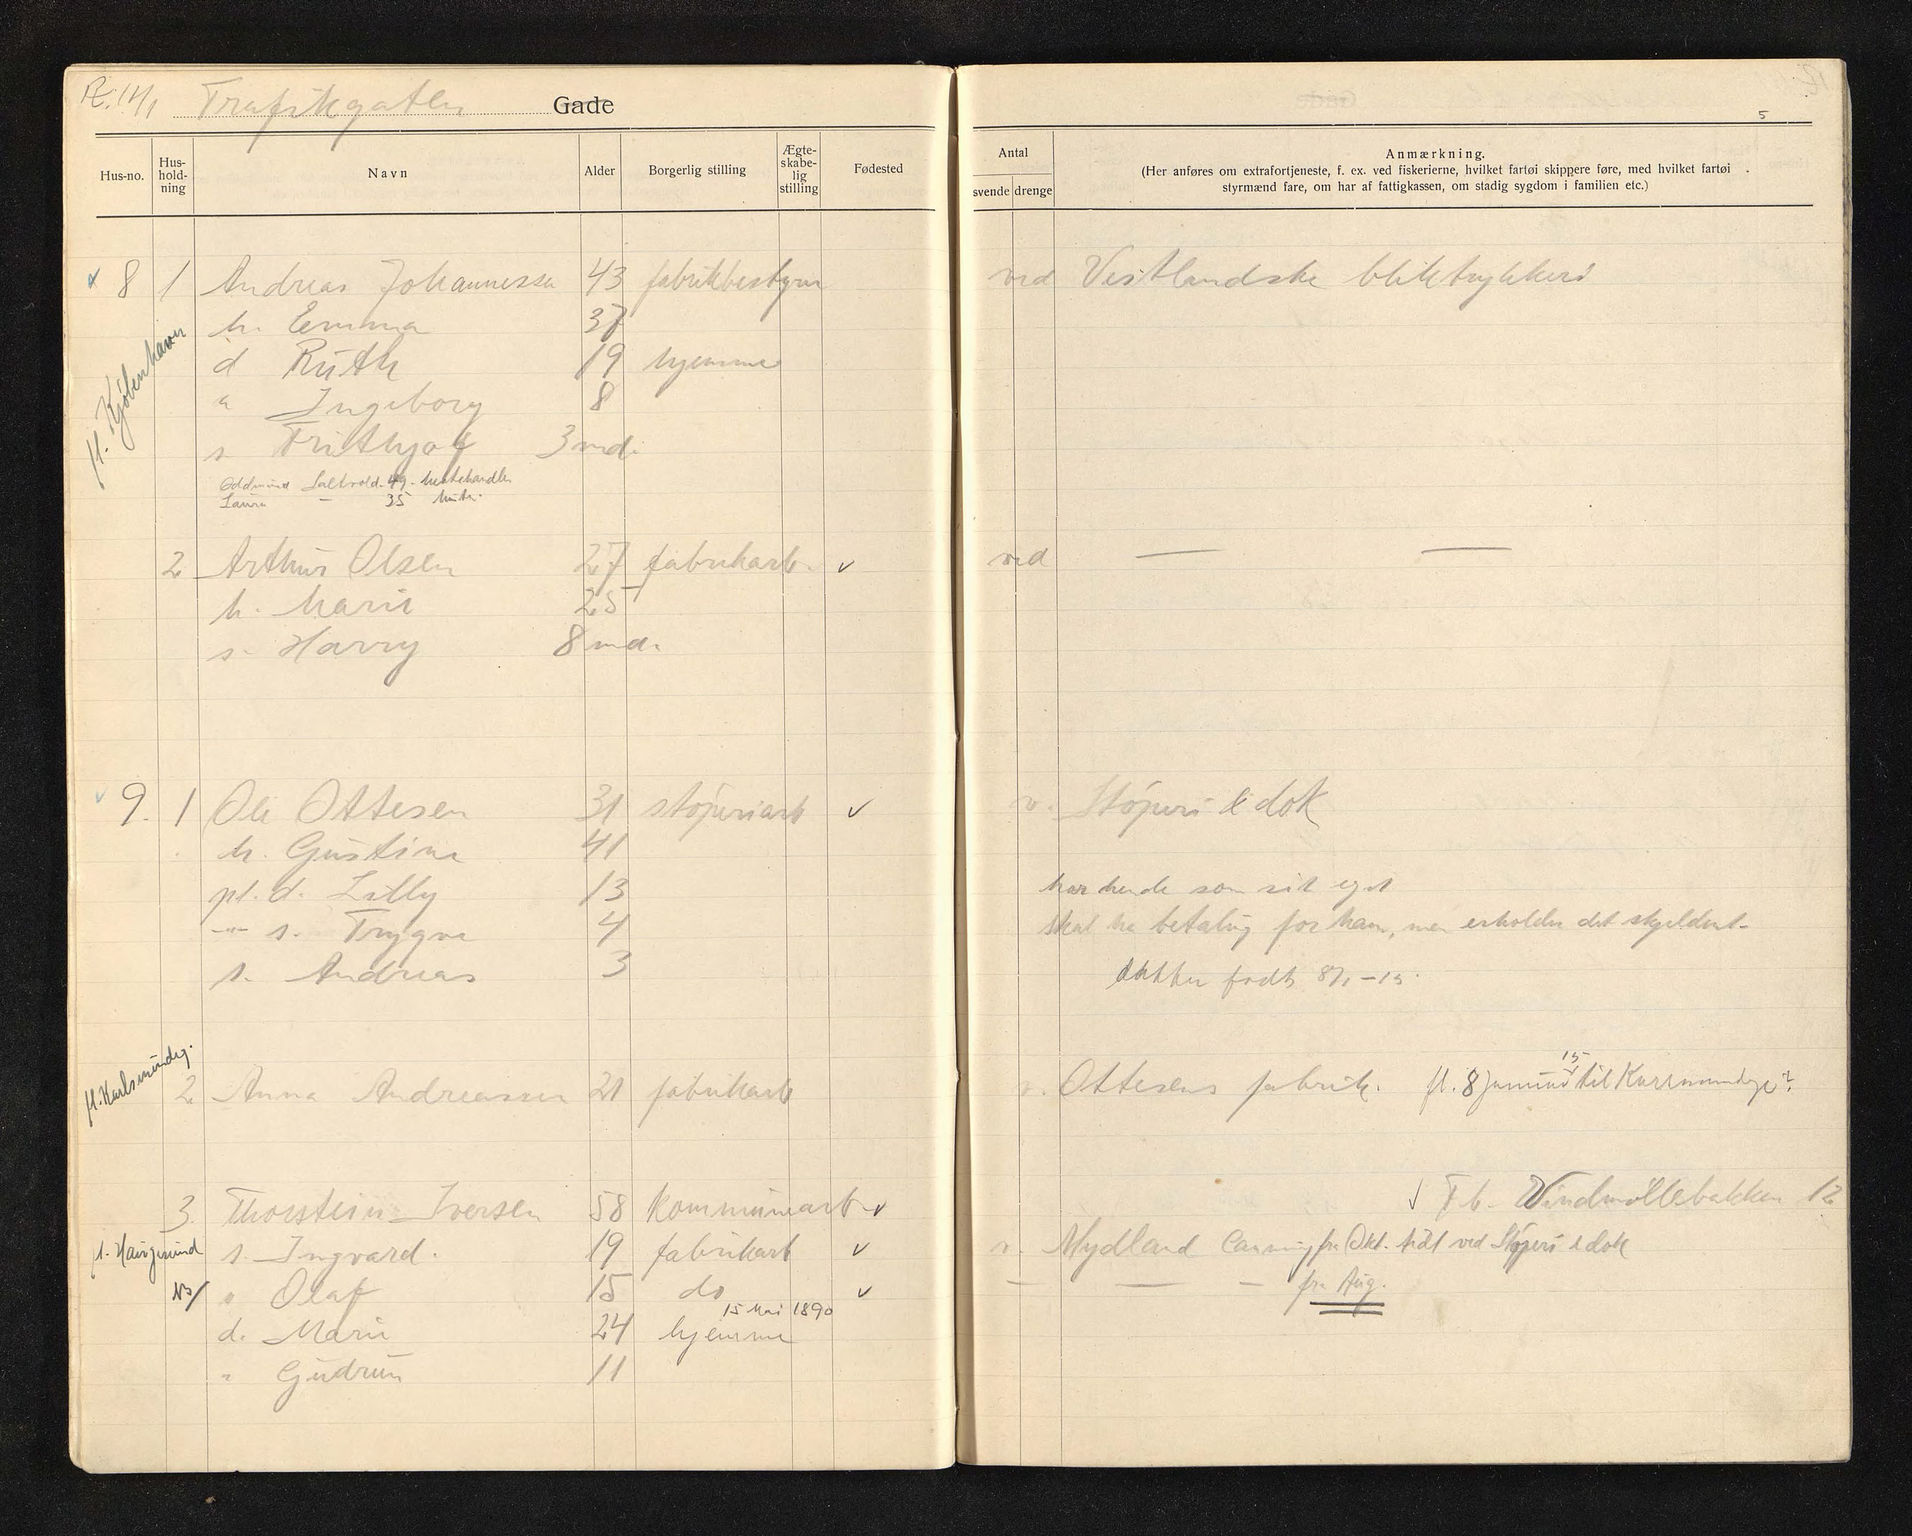 R. 14/1 Trafikgaten Gade
5
Hus-no. Hus-hold-ning Navn Alder Borgerlig stilling Ægte-skabe-lig stilling Fødested
Antal svende drenge Anmærkning.
(Her anføres om extrafortjeneste, f. ex. ved fiskerierne, hvilket fartøi skippere føre, med hvilket fartøi
styrmænd fare, om har af fattigkassen, om stadig sygdom i familien etc.)
✓ 8 1 Andreas Johannessen 43 fabrikbestyrer ved Vestlandske bliktrykkeri
fl. Kjøbenhavn
h. Emma 37
d Ruth 19 hjemme
" Ingeborg 8
s. Frithjof 3 md.
Oddmund 49.
Laura — 35 hustr.
2 Arthur Olsen 27 fabrikarb. ✓ ved — —
h. Marie 25
s. Harry 8 md.
✓ 9. 1 Ole Ottesen 31 støperiarb ✓ v. Støperi & dok
h. Gustine 41
pl. d. Lilly 13 har hende som sit eget
-"- s. Trygve 4 skal ha betaling for ham, men erholder det
s. Andreas 3 datter født 8/1 - 15.
fl. Karlsmindeg.
2 Anna Andreassen 21 fabrikarb v. Ottesens fabrik. fl. 8 januar 15 til
3. Thorstein Iversen 58 kommunearb. ✓ ✓ Fb. Vindmøllebakken 12
f. Haugesund s. Ingvard. 19 fabrikarb ✓ v. Mydland Canning fra Okt. tidl ved Støperi & dok
" Olaf 15 do ✓ — — — fra Aug.
15 Mai 1890
d. Marie 24 hjemme
" Gudrun 11